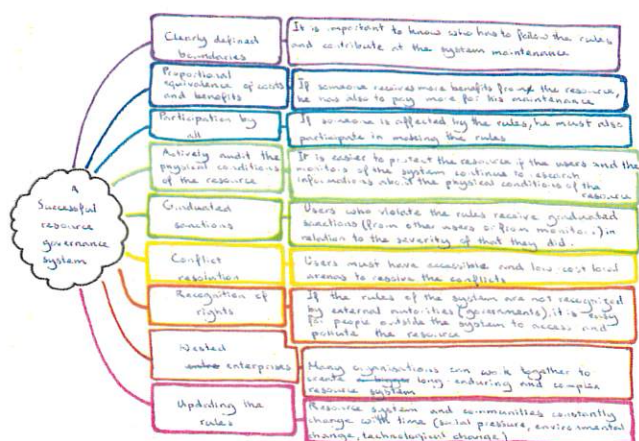 A
Successful
resource
governance
system
Clearly defined
boundaries
It is important to know who has to follow the rules
and contribute at the system maintenance
Proportional
equivalence of costs
and benefits
If someone receives more benefits from the resource,
he has also to pay more for his maintenance
Participation by
all
If someone is affected by the rules, he must also
participate in making the rules
Actively audit the
physical conditions
of the resource
It is easier to protect the resource if the users and the
monitors of the system continue to research
informations about the physical conditions of the
resource
Graduated
sanctions
Users who violate the rules receive graduated
sanctions (from other users or from monitors) in
relation to the severity of that they did.
Conflict
resolution
Users must have accessible and low-cost local
arenas to resolve the conflicts
Recognition of
rights
If the rules of the system are not recognized
by external autorities (governments), it is easy
for people outside the system to access and
pollute the resource
Nested
enterprises
Many organisations can work together to
create long-enduring and complex
resource system
Updating the
rules
Resource system and communities constantly
change with time (social pressure, environmental
change, technological change)